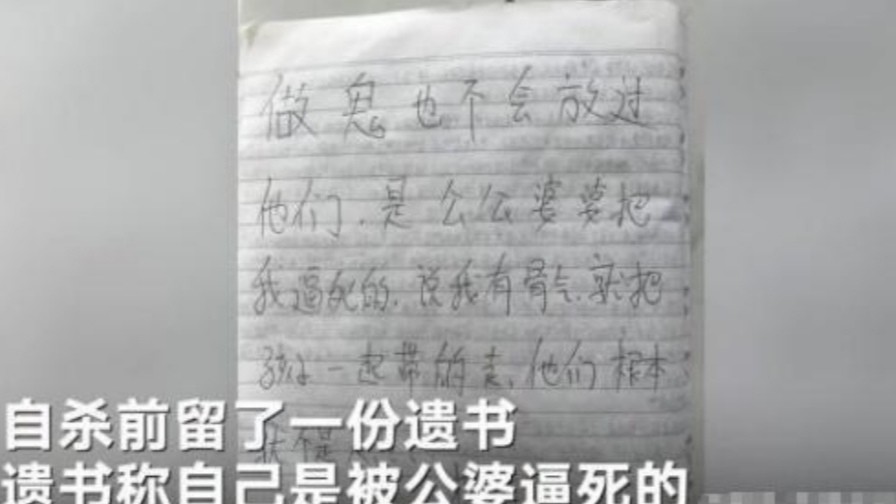 做鬼也不会放过
他们、是公公婆婆把
我逼死的、说我有骨气就把
孩子一起带的走、他们根本
就不是
自杀前留了一份遗书
遗书称自己是被公婆逼死的